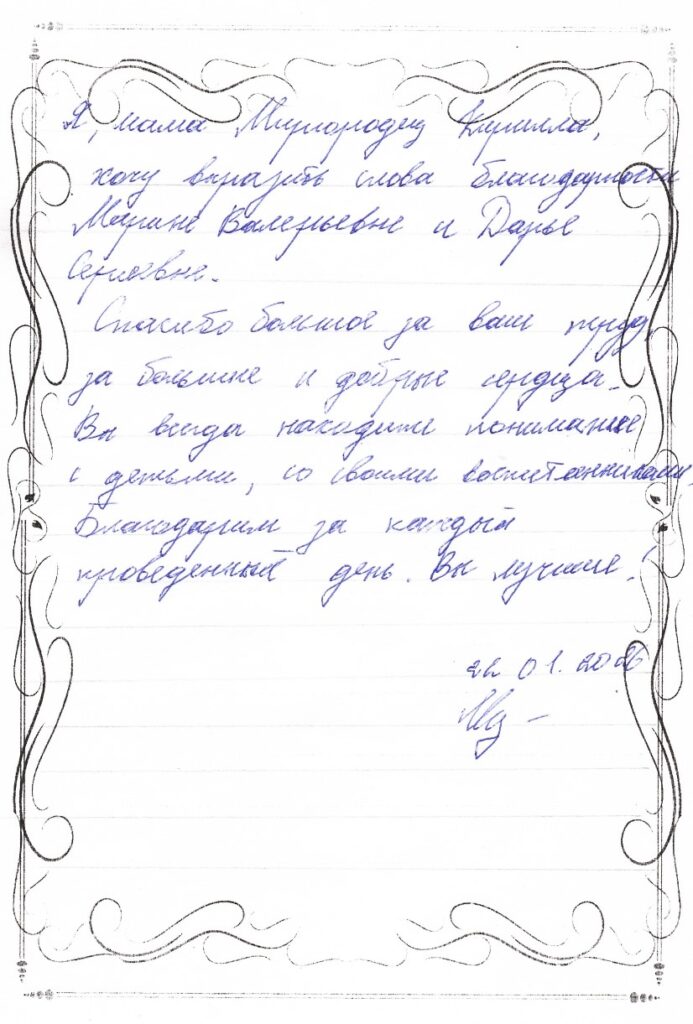 Я, мама Миргородец Кирилла,
хочу выразить слова благодарности
Марине Валерьевне и Дарье
Сергеевне.
Спасибо большое за ваш труд,
за большие и добрые сердца.
Вы всегда находите понимание
с детьми, со своими воспитанниками.
Благодарим за каждый
проведенный день. Вы лучшие!
22.01.2026